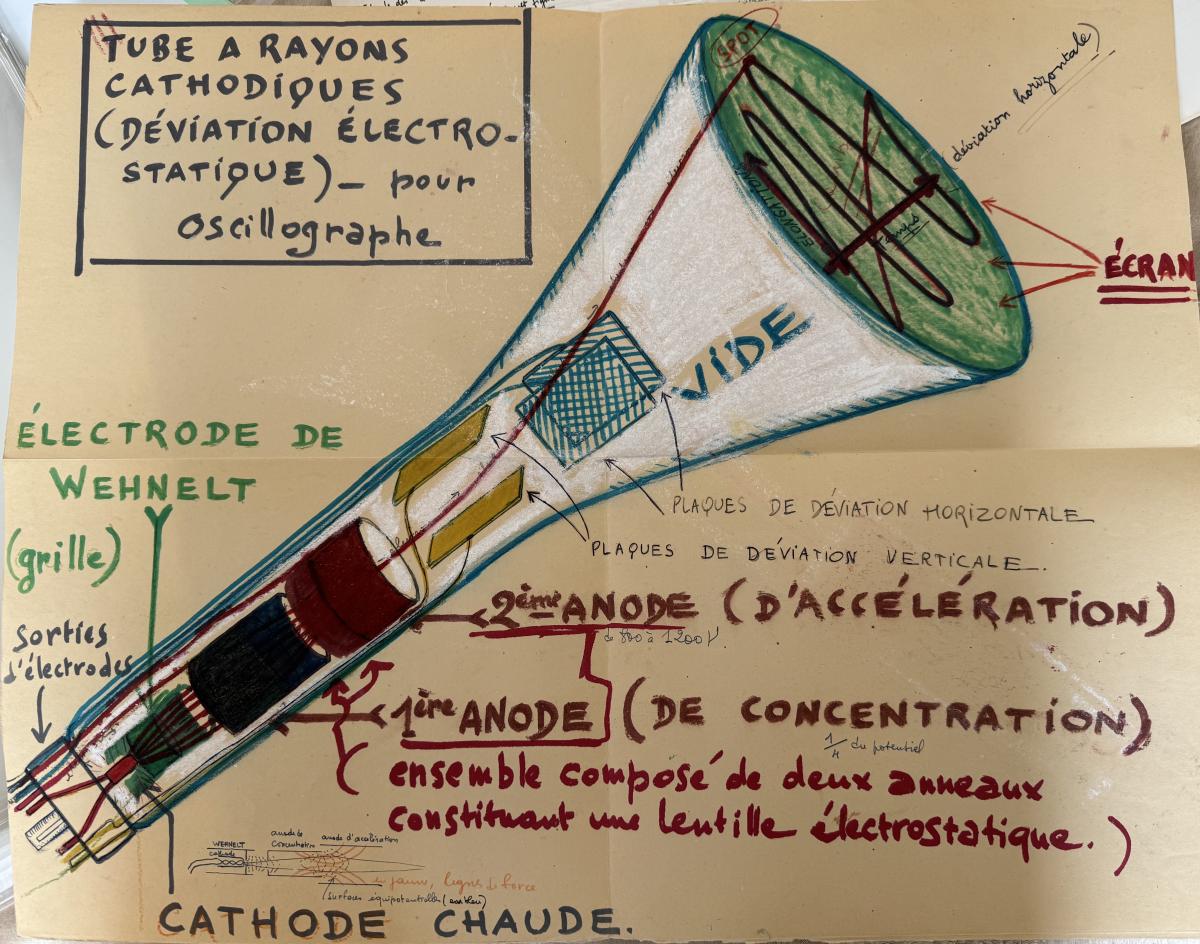 TUBE A RAYONS
CATHODIQUES
(DÉVIATION ÉLECTRO-
STATIQUE) _ pour
Oscillographe
SPOT
déviation horizontale)
ÉLONGATION
Temps
ÉCRAN
VIDE
ÉLECTRODE DE
WEHNELT
(grille)
Sorties
d'électrodes
PLAQUES DE DÉVIATION HORIZONTALE
PLAQUES DE DÉVIATION VERTICALE.
2ème ANODE (D'ACCÉLÉRATION)
de 800 à 1200 V.
1ère ANODE (DE CONCENTRATION)
1/4 du potentiel
ensemble composé de deux anneaux
constituant une lentille électrostatique.)
WEHNELT
cathode
anode de
concentration
anode d'accélération
en jaune, lignes de force
surfaces équipotentielles (en bleu)
CATHODE CHAUDE.